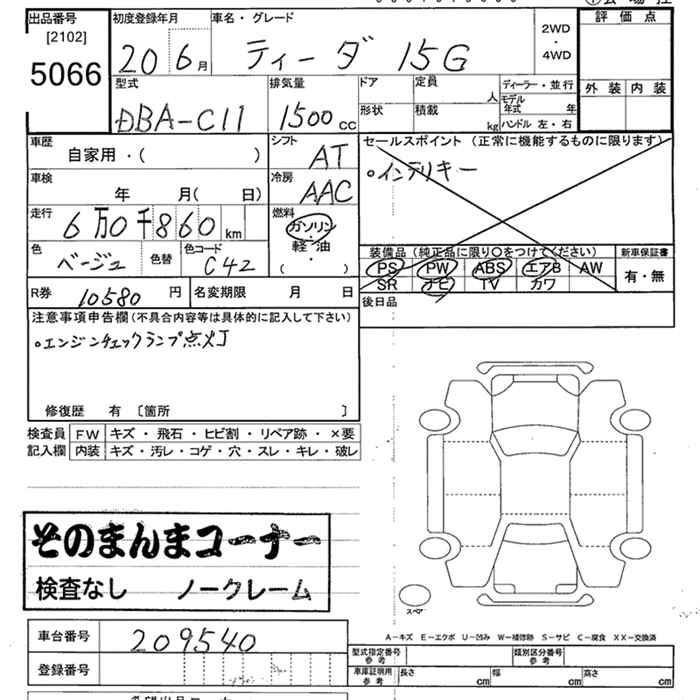 出品番号 初度登録年月 車名・グレード 評価点
[2102]
5066
20 6月 ティーダ 15G 2WD・4WD
型式 排気量 ドア 定員 人 ディーラー・並行 外装 内装
DBA-C11 1500cc 形状 積載 kg モデル年式 年
ハンドル 左・右
車歴 自家用・( ) シフト AT セールスポイント (正常に機能するものに限ります)
車検 年 月( 日) 冷房 AAC 。インテリキー
走行 6万0千860km 燃料 ガソリン・軽・油・( )
色 ベージュ 色替 色コード C42
装備品(純正品に限り〇をつけてください) 新車保証書
PS PW ABS エアB AW 有・無
SR ナビ TV カワ
R券 10580円 名変期限 月 日 後日品
注意事項申告欄(不具合内容等は具体的に記入して下さい)
。エンジンチェックランプ点灯
修復歴 有 〔箇所 〕
検査員 FW キズ・飛石・ヒビ割・リペア跡・×要
記入欄 内装 キズ・汚レ・コゲ・穴・スレ・キレ・破レ
そのまんまコーナー
検査なし ノークレーム
スペア
A-キズ E-エクボ U-凹み W-補修跡 S-サビ C-腐食 XX-交換済
車台番号 209540
登録番号
型式指定番号 参考 類別区分番号 参考
車庫証明用 参考 長さ cm 幅 cm 高さ cm